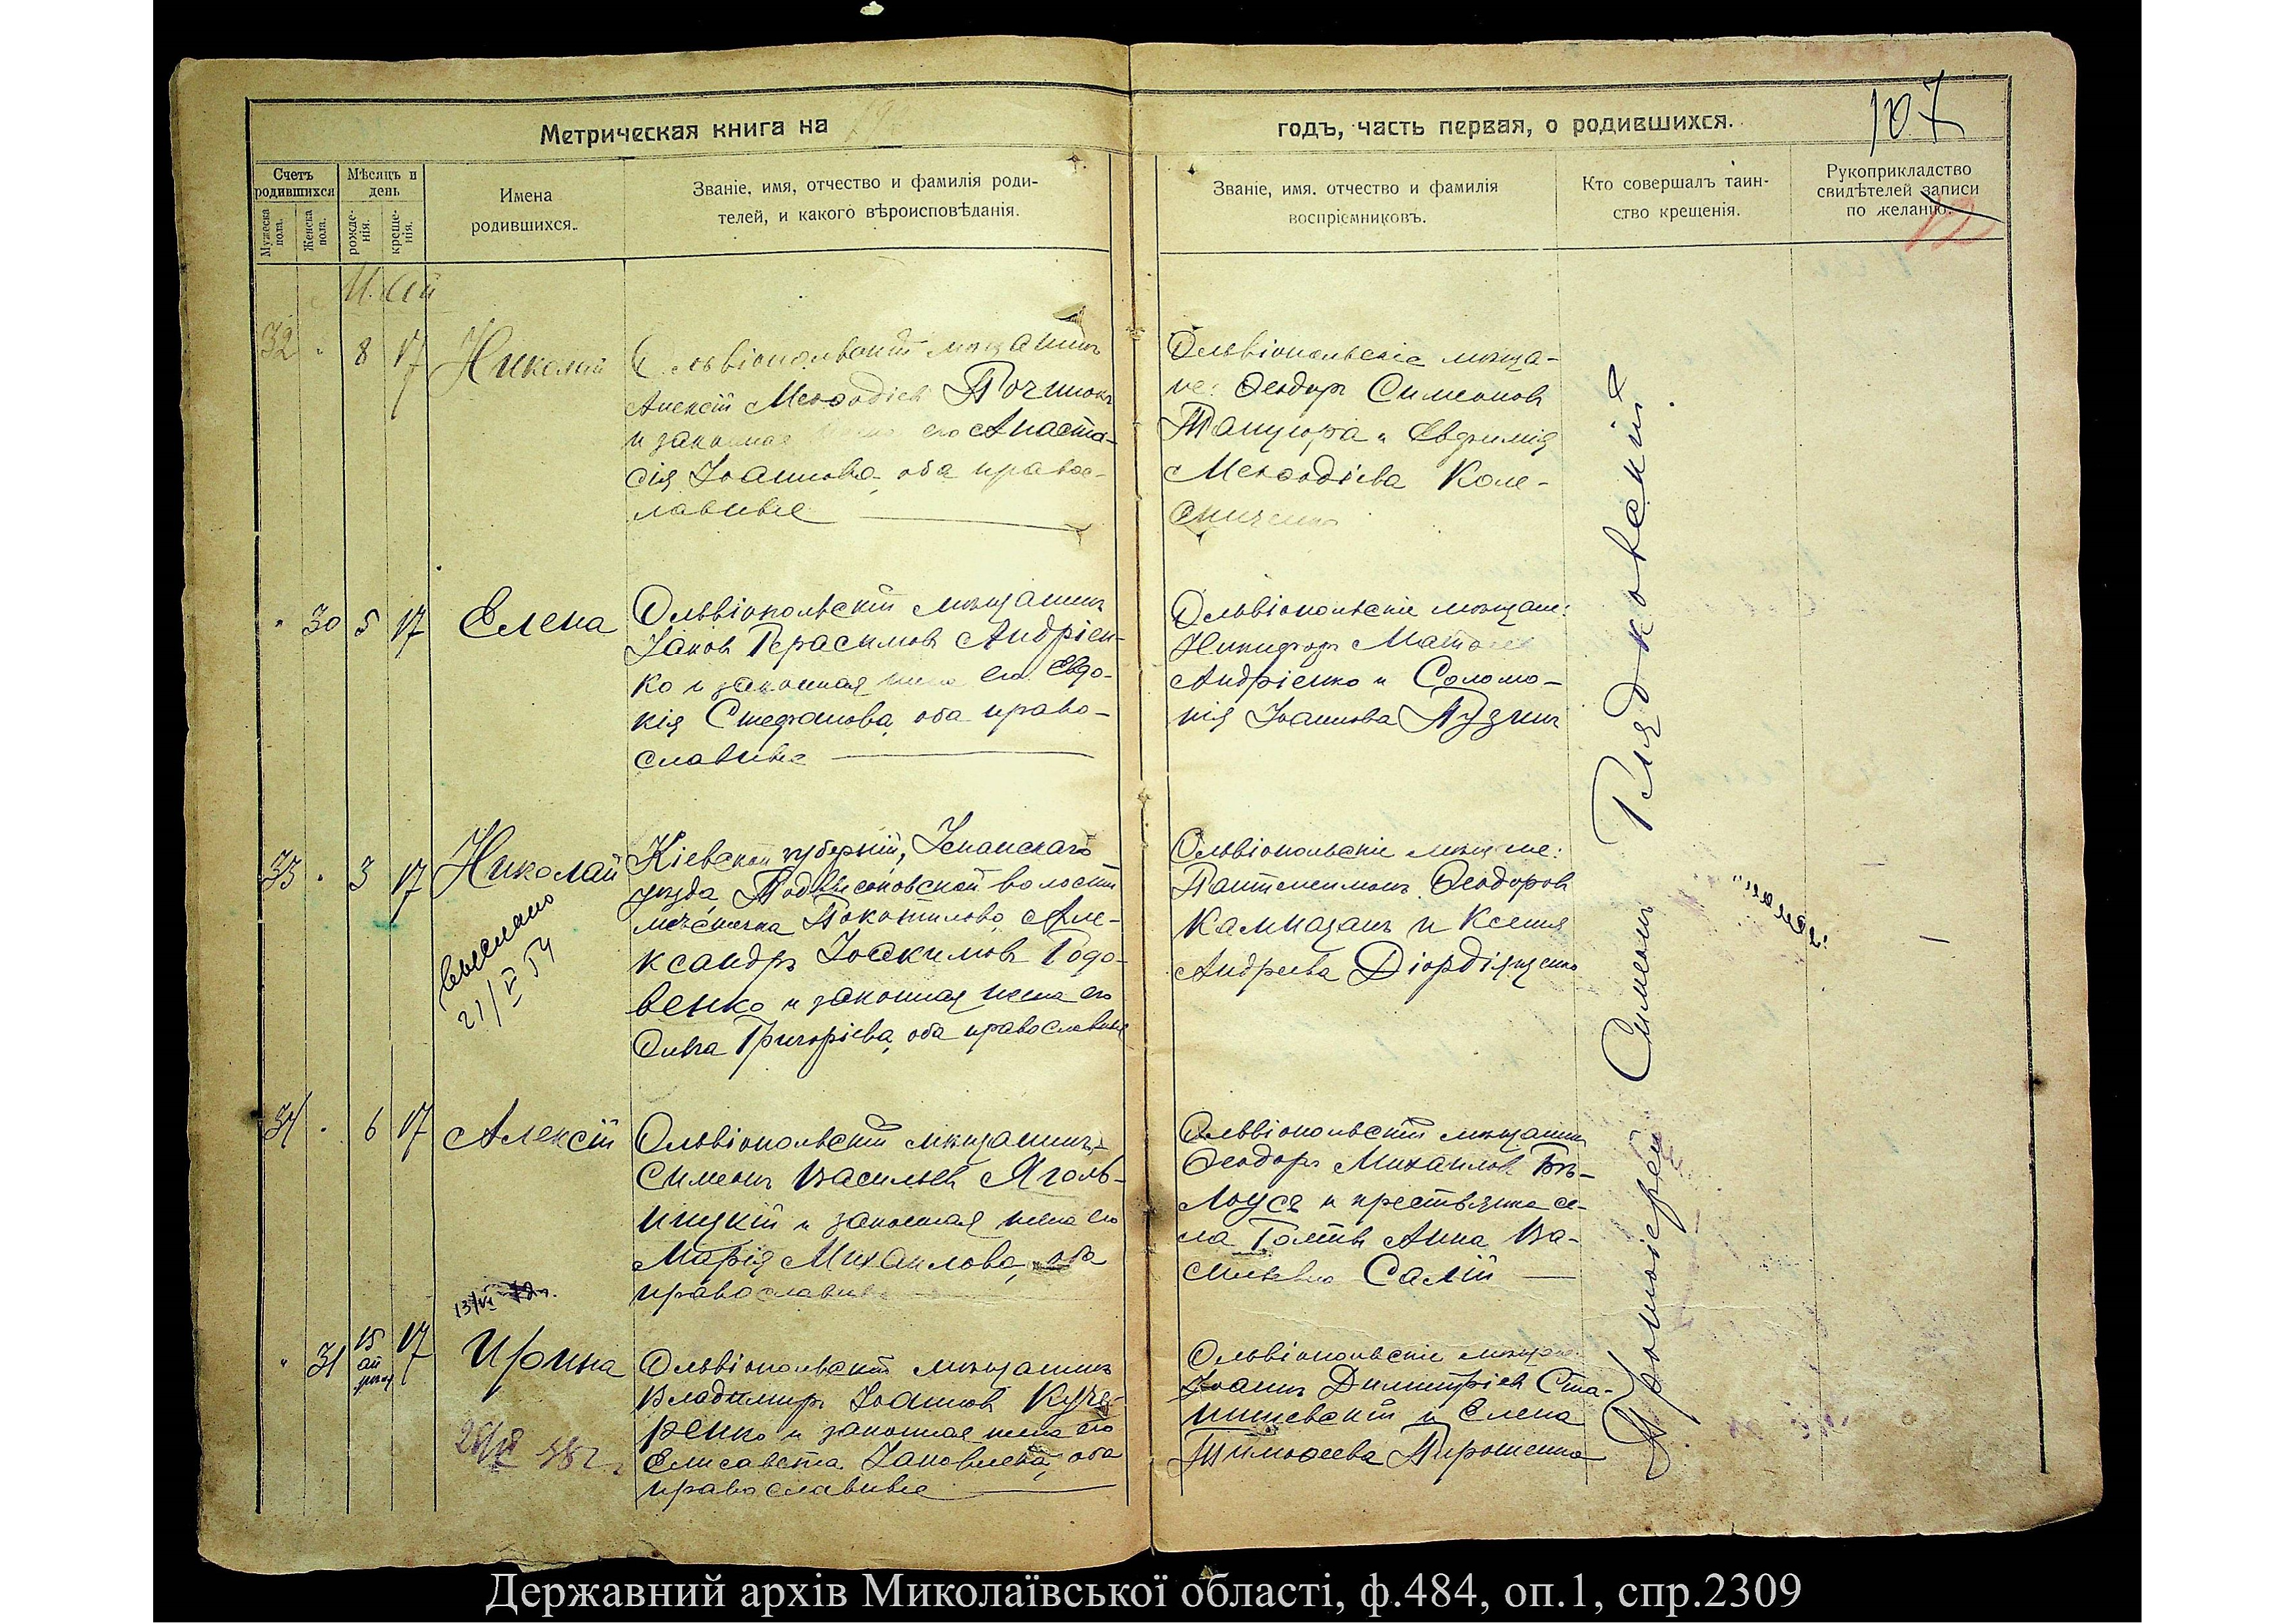 Метрическая книга на
годъ, часть первая, о родившихся.
107
12
Счетъ родившихся
Мѣсяцъ и день
Имена родившихся.
Званіе, имя, отчество и фамилія роди-
телей, и какого вѣроисповѣданія.
Званіе, имя, отчество и фамилія
воспріемниковъ.
Кто совершалъ таин-
ство крещенія.
Рукоприкладство
свидѣтелей записи
по желанію.
Мужеска пола.
Женска пола.
рожде-нія.
креще-нія.
Май
32 8 17 Николай
Ольвіопольскій мѣщанинъ
Алексій Меѳодіевъ
и законная жена его Анаста-
сія Іоаннова, оба правос-
лавные
Ольвіопольскіе мѣща-
не: Ѳеодоръ Симеоновъ
Танцюра и Евфимія
Меѳодіева Коле-
сниченко
30 5 17 Елена
Ольвіопольскій мѣщанинъ
Іаковъ Герасимовъ Андріен-
ко и законная жена его Евдо-
кія Стефанова, оба право-
славные
Ольвіопольскіе мѣщане:
Никифоръ
Андріенко и Соломо-
нія Іоаннова
33 3 17 Николай
выслано
21/V 54
Кіевской губерніи, Уманскаго
уѣзда, Подвысоковской волости
мѣстечка Покотилово, Але-
ксандръ Іоакимовъ Годо-
венко и законная жена его
Ольга Григоріева, оба православные
Ольвіопольскіе мѣщане:
Пантелеимонъ Ѳеодоровъ
Калмазанъ и Ксенія
Андреева Діордіященко
34 6 17 Алексій
Ольвіопольскій мѣщанинъ
Симеонъ Васильевъ Яголь-
ницкій и законная жена его
Марія Михаилова, оба
православные
Ольвіопольскій мѣщанинъ
Ѳеодоръ Михаиловъ Бѣ-
лоусъ и крестьянка се-
ла Голты Анна Ва-
сильева Салій
13/VI
31 15 апрѣля 17 Ирина
Ольвіопольскій мѣщанинъ
Владимиръ Іоанновъ Куче-
ренко и законная жена его
Елисавета Іаковлева, оба
православные
Ольвіопольскіе мѣщане:
Іоаннъ Димитріевъ Ста-
нишевскій и Елена
Тимоѳеева Мирошенко
Протоіерей Симеонъ Глядковскій
Державний архів Миколаївської області, ф.484, оп.1, спр.2309